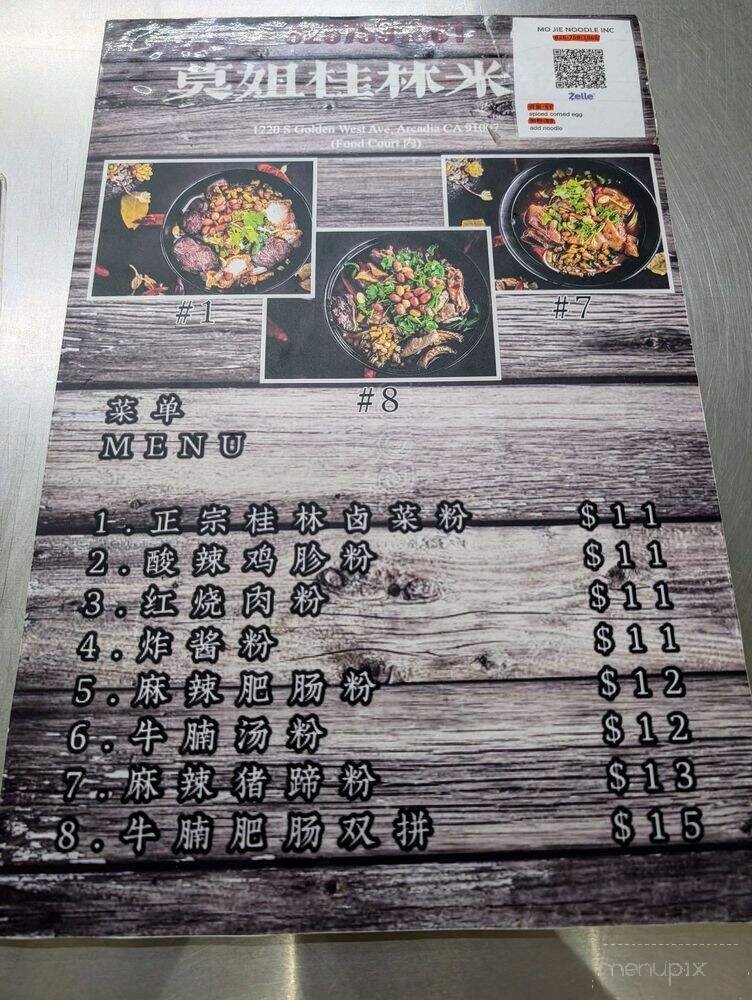 莫姐桂林米
1220 S Golden West Ave, Arcadia CA 91007
(Food Court 内)
MO JIE NOODLE INC
Zelle
spiced corned egg
add noodle
#1
#7
#8
菜单
MENU
1.正宗桂林卤菜粉 $11
2.酸辣鸡胗粉 $11
3.红烧肉粉 $11
4.炸酱粉 $11
5.麻辣肥肠粉 $12
6.牛腩汤粉 $12
7.麻辣猪蹄粉 $13
8.牛腩肥肠双拼 $15
menupix